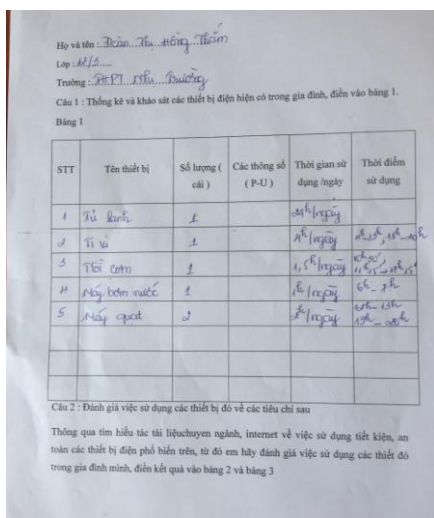 Họ và tên : Đoàn Thị Hồng Thắm
Lớp : 12/5
Trường : THPT Như
Câu 1 : Thống kê và khảo sát các thiết bị điện hiện có trong gia đình, điền vào bảng 1.
Bảng 1
STT Tên thiết bị Số lượng ( cái ) Các thông số ( P-U ) Thời gian sử dụng /ngày Thời điểm sử dụng
1 Tủ lạnh 1 24h/ngày
2 Ti vi 1 4h/ngày
3 Nồi cơm 1 1,5h/ngày
4 Máy bơm nước 1 1h/ngày 6h - 7h
5 Máy quạt 2 2h/ngày
Câu 2 : Đánh giá việc sử dụng các thiết bị đó về các tiêu chí sau
Thông qua tìm hiểu tác tài liệuchuyen ngành, internet về việc sử dụng tiết kiện, an
toàn các thiết bị điện phổ biến trên, từ đó em hãy đánh giá việc sử dụng các thiết đó
trong gia đình mình, điền kết quả vào bảng 2 và bảng 3